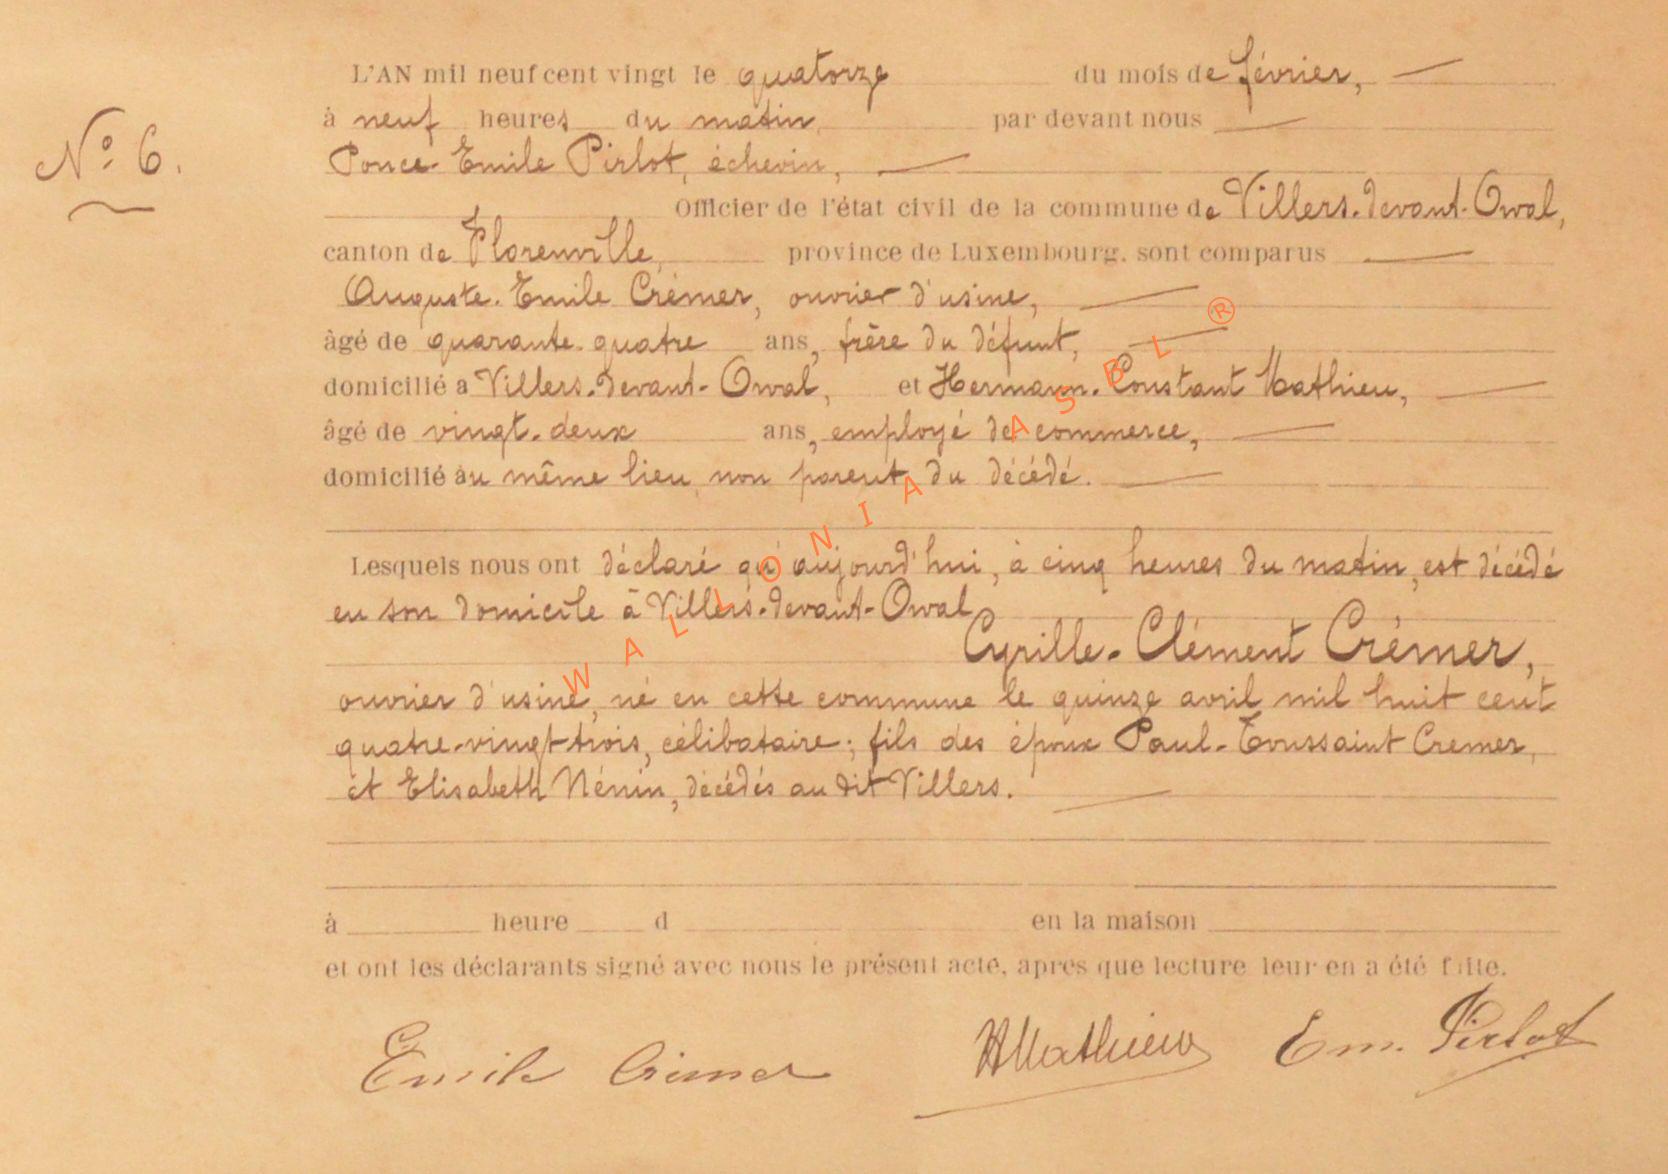 L'AN mil neuf cent vingt le quatorze du mois de février,
à neuf heures du matin par devant nous
Nº 6.
Ponce Emile Pirlot, échevin,
Officier de l'état civil de la commune de Villers-devant-Orval,
canton de Florenville, province de Luxembourg, sont comparus
Auguste-Emile Crémer, ouvrier d'usine,
âgé de quarante-quatre ans, frère du défunt,
domicilié à Villers-devant-Orval, et Hermann-Constant Mathieu,
âgé de vingt-deux ans, employé de commerce,
domicilié au même lieu, non parent du décédé.
Lesquels nous ont déclaré qu'aujourd'hui, à cinq heures du matin, est décédé
en son domicile à Villers-devant-Orval
Cyrille-Clément Crémer,
ouvrier d'usine, né en cette commune le quinze avril mil huit cent
quatre-vingt-trois, célibataire; fils des époux Paul-Toussaint Cremer,
et Elisabeth Nénin, décédés au dit Villers.
à heure d en la maison
et ont les déclarants signé avec nous le présent acte, apres que lecture leur en a été faite.
Emile Crémer HMathieu Em. Pirlot
WALLONIA ASBL ®